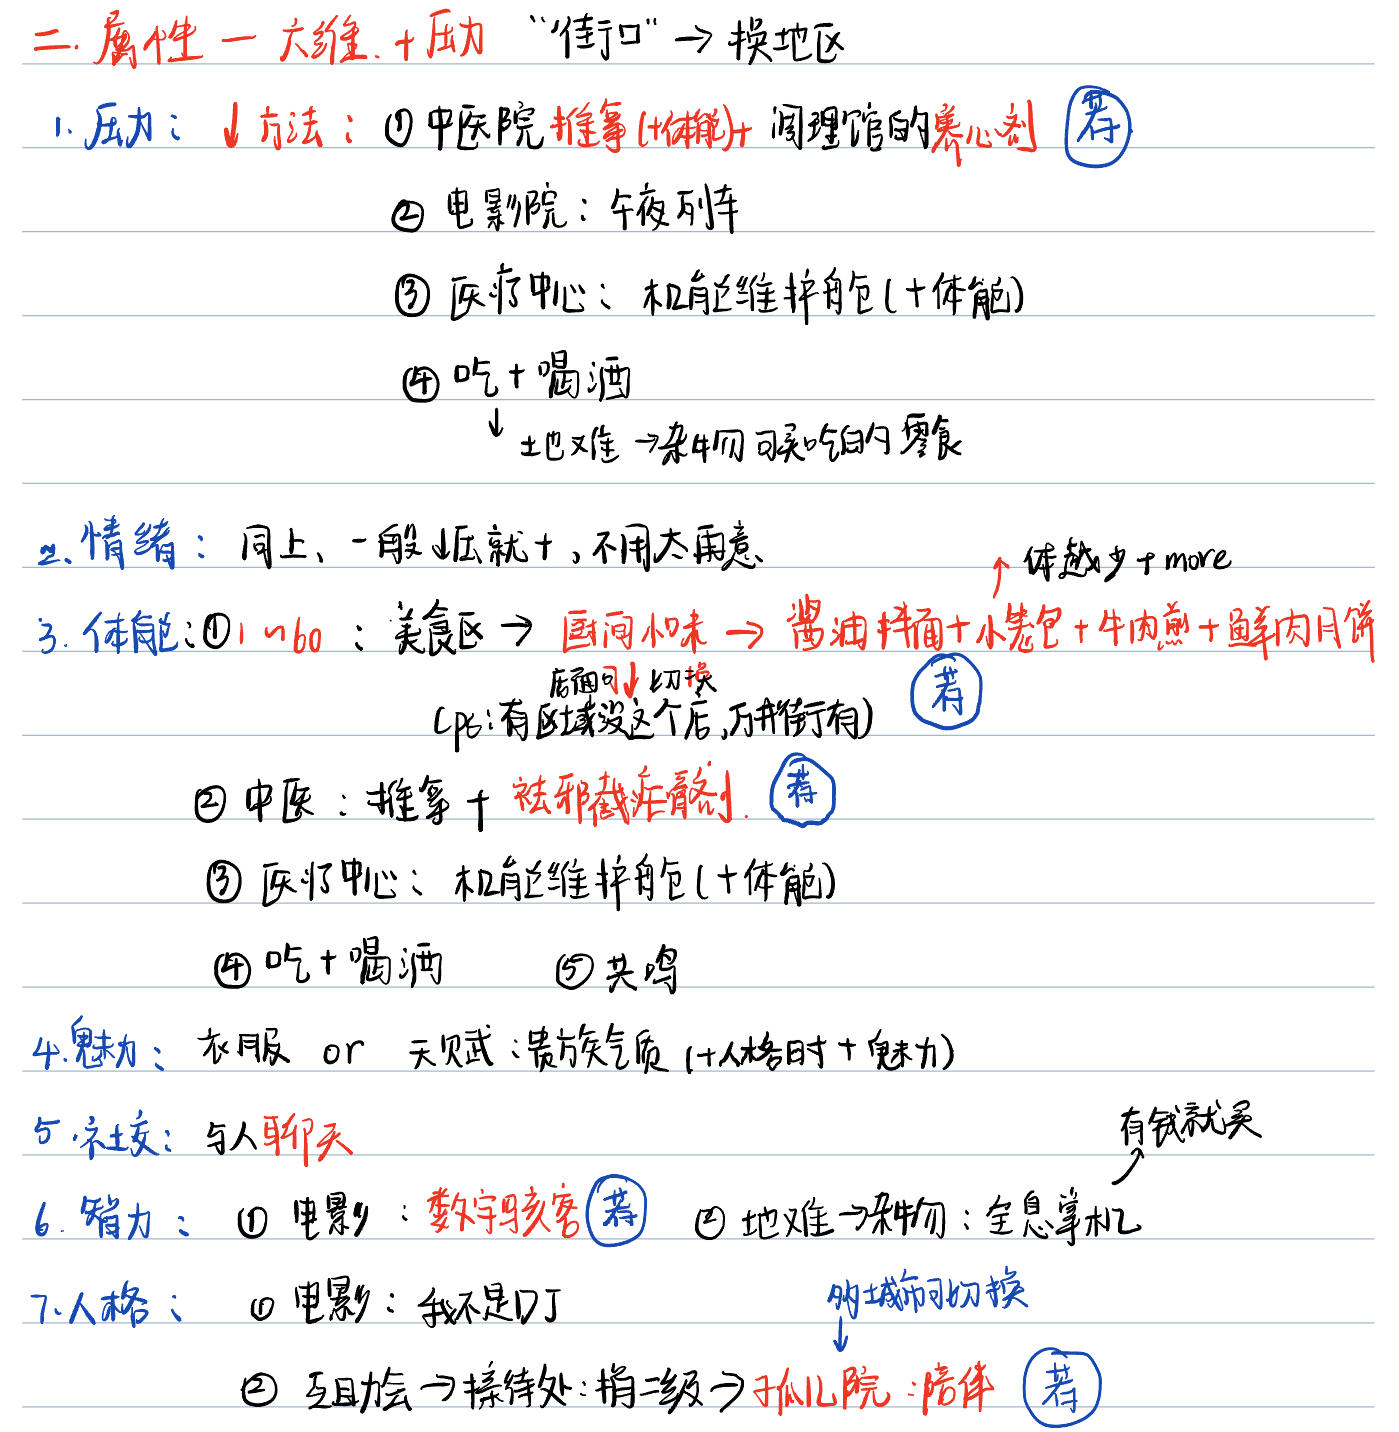 二. 属性 — 六维. + 压力 “街口” → 换地区
1. 压力： ↓ 方法： ① 中医院 推拿 (+体能) + 调理馆的 养心剂 荐
② 电影院：午夜列车
③ 医疗中心： 机能维护舱 (+体能)
④ 吃 + 喝酒
↓ 土地难 → 杂物 可买吃的 零食
2. 情绪： 同上、一般↓压就+，不用太用意、
↑ 体越少 + more
3. 体能：① 1~60 ： 美食区 → 厨间小味 → 酱油拌面 + 小笼包 + 牛肉煎 + 鲜肉月饼
店面可↓切换 荐
(ps: 有区域没这个店，万井街有)
② 中医：推拿 + 祛邪截疟膏剂. 荐
③ 医疗中心： 机能维护舱 (+体能)
④ 吃 + 喝酒 ⑤ 共鸣
4. 魅力： 衣服 or 天赋：贵族气质 (+人格时 + 魅力)
有钱就买
5. 社交： 与人聊天
6. 智力： ① 电影：数字骇客 荐 ② 地难 → 杂物：全息掌机
7. 人格： ① 电影：我不是DJ
的城市可切换
② 互助会 → 接待处：捐二级 → 孤儿院：陪伴 荐